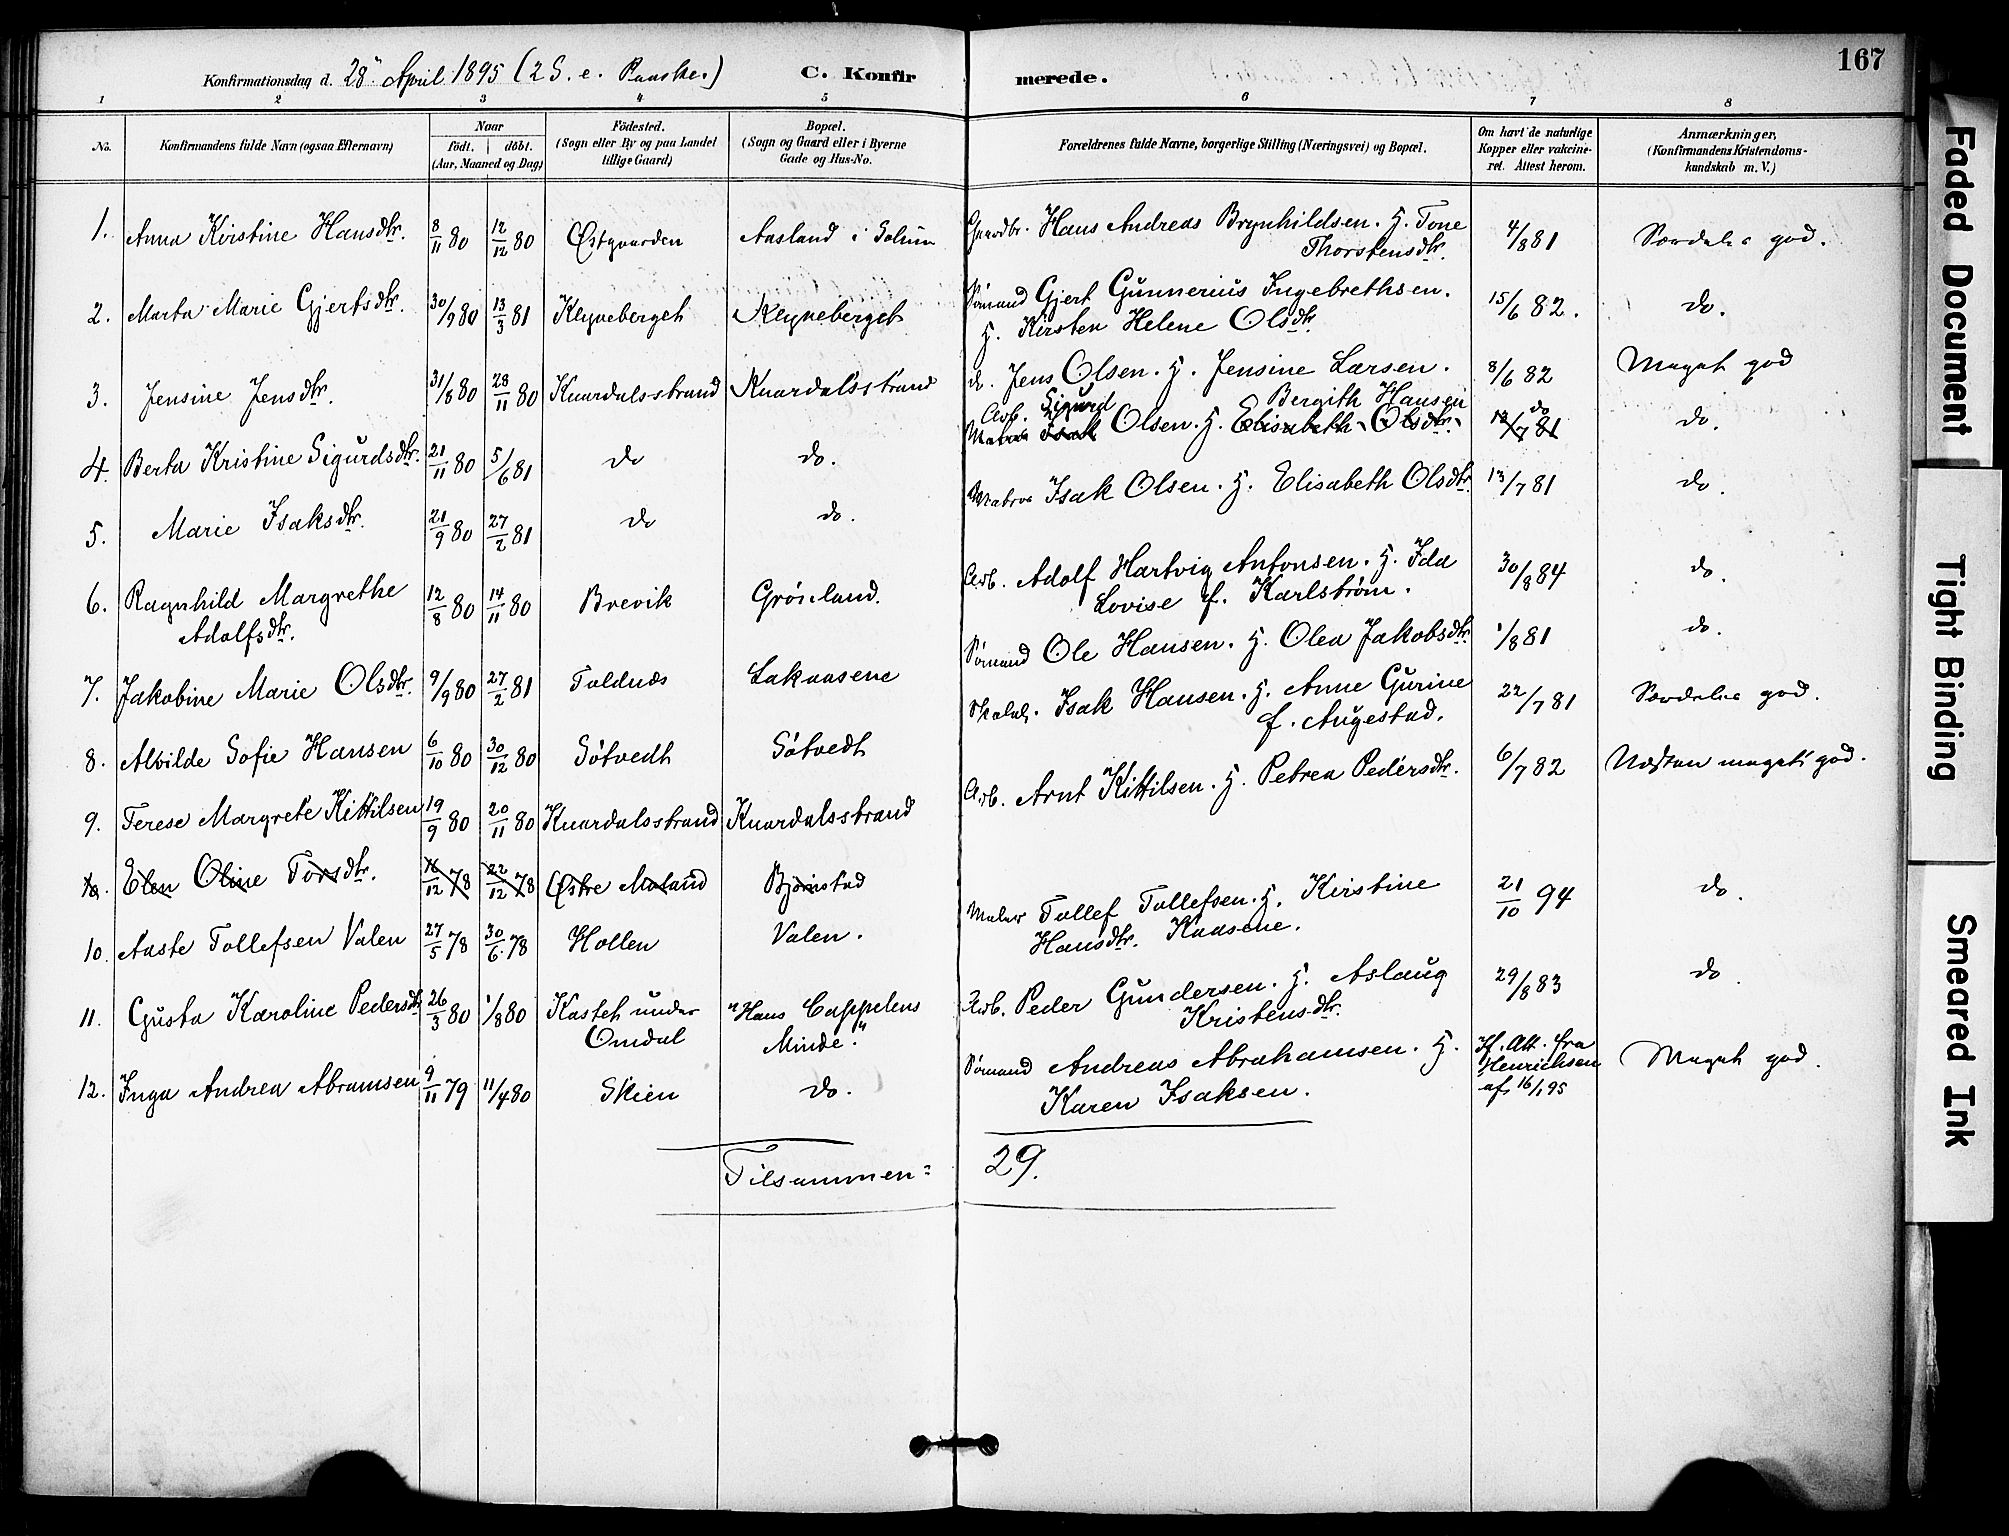 167
Konfirmationsdag d. 28de April 1895 (2 S. e. Paaske.) C. Konfirmerede.
1 2 3 4 5 6 7 8
No. Konfirmandens fulde Navn (ogsaa Efternavn) Naar født. døbt. (Aar, Maaned og Dag) Fødested. (Sogn eller By og paa Landet tillige Gaard) Bopæl. (Sogn og Gaard eller i Byerne Gade og Hus-No. Forældrenes fulde Navne, borgerlige Stilling (Næringsvei) og Bopæl. Om havt de naturlige Kopper eller vaccineret. Attest herom. Anmærkninger, (Konfirmandens Kristendomskundskab m. V.)
1. Anna Kirstine Hansdtr. 8/11 80 12/12 80 Østgaarden Aasland i Solum Gaardbr. Hans Andreas Brynhildsen. H. Tone Thorstensdtr. 4/8 81 Særdeles god.
2. Marta Marie Gjertsdtr. 30/9 80 13/3 81 Klyneberget Klyneberget Sømand Gjert Gunnerius Ingebrethsen. H. Kirsten Helene Olsdtr. 15/6 82. do.
3. Jensine Jensdtr. 31/8 80 28/11 80 Knardalsstrand Knardalsstrand do. Jens Olsen. H. Jensine Larsen. 8/6 82 Meget god
4. Berta Kristine Sigurdsdtr. 21/11 80 5/6 81 do do. Arb. Sigurd Bergith Hansen
Matros Isak Olsen. H. Elisabeth Olsdtr. 13/7 81 do do.
5. Marie Isaksdtr. 21/9 80 27/2 81 do do. Matros Isak Olsen. H. Elisabeth Olsdtr. 13/7 81 do.
6. Ragnhild Margrethe Adolfsdtr. 12/8 80 14/11 80 Brevik Grønland. Arb. Adolf Hartvig Antonsen. H. Ida Lovise f. Karlstrøm. 30/8 84 do.
7. Jakobine Marie Olsdtr. 9/9 80 27/2 81 Toldnæs Lakaasene Sømand Ole Hansen. H. Olea Jakobsdtr. 1/8 81 do.
8. Alvilde Sofie Hansen 6/10 80 30/12 80 Søtvedt Søtvedt Isak Hansen. H. Anne Gurine f. Augestad. 22/7 81 Særdeles god.
9. Terese Margrete Kittilsen 19/9 80 20/11 80 Knardalsstrand Knardalsstrand Arb. Arnt Kittilsen. H. Petrea Pedersdtr. 6/7 82 Næsten meget god.
10. Elen Oline Torsdtr. 16/12 78 22/12 78 Østre Moland Bjørnstad
10. Aaste Tollefsen Valen 27/5 78 30/6 78 Hollen Valen. Maler Tollef Tollefsen. H. Kirstine Hansdtr. Kaasene. 21/10 94 do.
11. Gusta Karoline Pedersdtr. 26/3 80 1/8 80 Kastet under Omdal "Hans Cappelens Minde." Arb. Peder Gundersen. H. Aslaug Kristensdtr. 29/8 83 do.
12. Inga Andrea Abramsen 9/11 79 11/4 80 Skien do. Sømand Andreas Abrahamsen. H. Karen Isaksen. K. Att. fra Henrichsen af 16/1 95 Meget god.
Tilsammen: 29.
Faded Document
Tight Binding
Smeared Ink